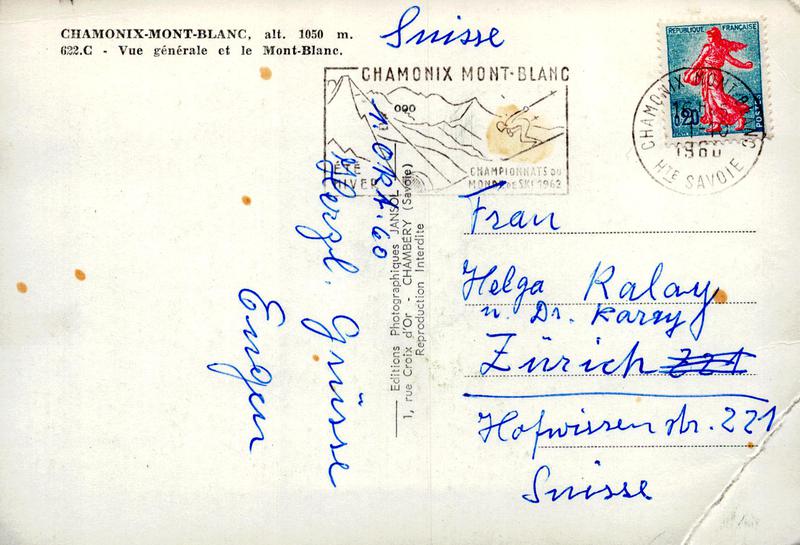 CHAMONIX-MONT-BLANC, alt. 1050 m.
622.C - Vue générale et le Mont-Blanc.
Suisse
CHAMONIX MONT-BLANC
ÉTÉ
HIVER
CHAMPIONNATS DU
MONDE DE SKI 1962
REPUBLIQUE FRANÇAISE
0,20
POSTES
CHAMONIX-MONT-BLANC
1960
HTE SAVOIE
Herzl. Grüsse
Eugen
Editions Photographiques JANSOL
1, rue Croix d'Or - CHAMBÉRY (Savoie)
Reproduction Interdite
Frau
Helga Kalay
u. Dr.
Zürich
Hofwissenstr. 221
Suisse